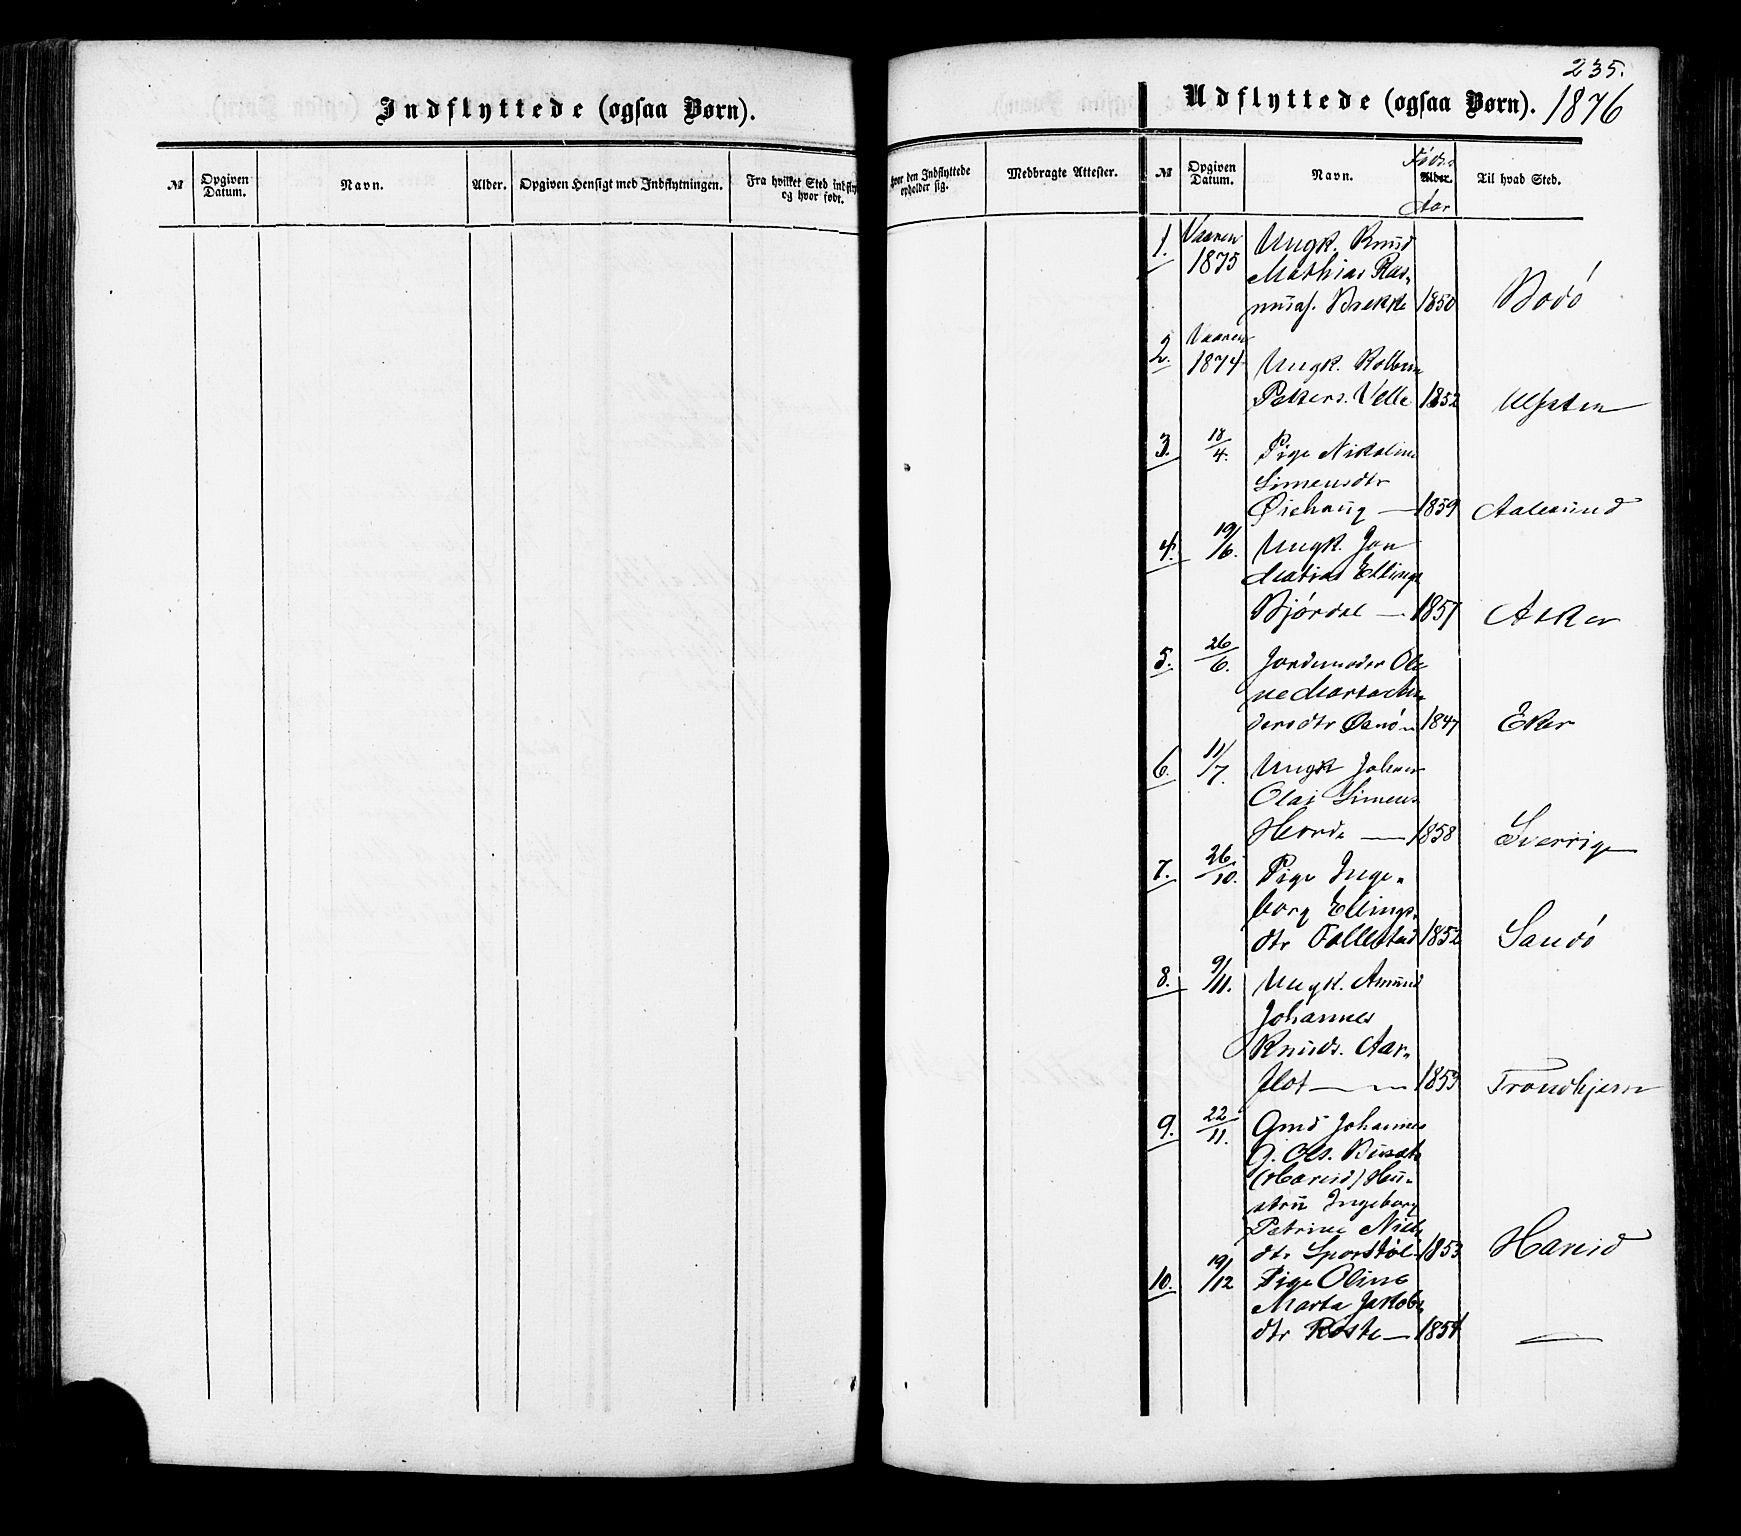 235.
Indflyttede (ogsaa Børn).
Udflyttede (ogsaa Børn). 1876
№ Opgiven Datum. Navn. Alder. Opgiven Hensigt med Indflytningen. Fra hvilket Sted indfly
og hvor født.
hvor den Indflyttede opholder sig. Medbragte Attester.
№ Opgiven Datum. Navn. Føds Alder. Aar Til hvad Sted.
1. Vaaren Ungk. Knud
1875 Mathias Ras-
muss. Brekke 1850 Bodö
2. Vaaren
1874 Ungk. Kolbein
Petters. Velle 1852 Ulfsten
3. 18/4. Pige Nikoline
Simensdtr
Øiehaug — 1859 Aalesund
4. 19/6. Ungk. Jon
Matias Ellings
Bjørdal — 1857 Asker
5. 26/6. Jordemoder Oli
ne Marta An
dersdtr 1847 Eker
6. 11/7. Ungk Johan
Olai Simens
1858 Sverrig
7. 26/10. Pige Inge-
borg Ellings-
dtr 1852 Sandö
8. 9/11. Ungk. Amund
Johannes
Knuds. Aar-
flot — 1853 Trondhjem
9. 22/11. Gmd Johannes
Ols.
(Hareid) Hu-
stru Ingeborg
Petrine Nils
dtr 1853 Hareid
10. 19/12 Pige Oline
Marta Jakobs
dtr — 1854 —